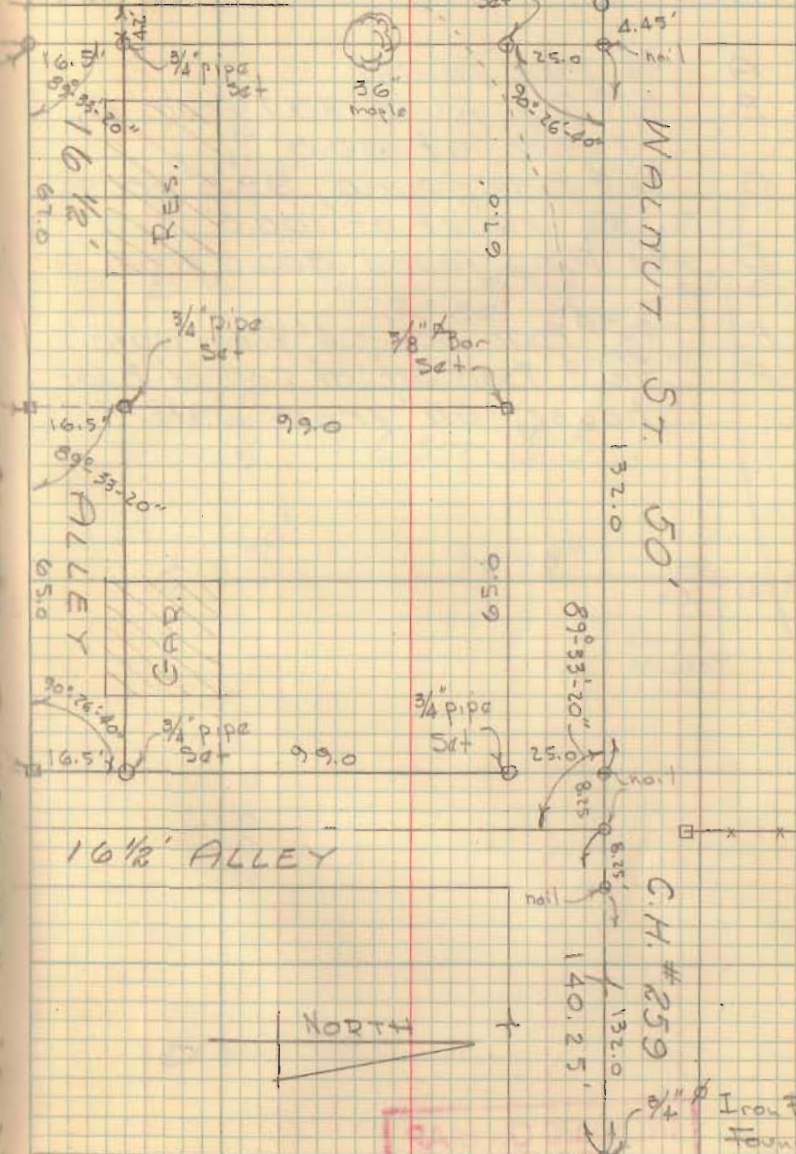 Set
4.45'
42'
16.5'
3/4" pipe
Set
36"
maple
25.0
nail
89°-33'-20"
90°-26'-40"
16 1/2'
ALLEY
67.0
RES.
67.0'
WALNUT ST. 50'
3/4" pipe
Set
3/8" ⌀ Bar
Set
16.5'
99.0
132.0
89°-33'-20"
65.0
GAR.
65.0
89°-33'-20"
90°-26'-40"
3/4" pipe
Set
3/4" pipe
Set
16.5'
99.0
25.0
nail
8.25
16 1/2' ALLEY
8.25'
nail
C.H. #259
NORTH
140.25'
132.0
3/4" ⌀ Iron